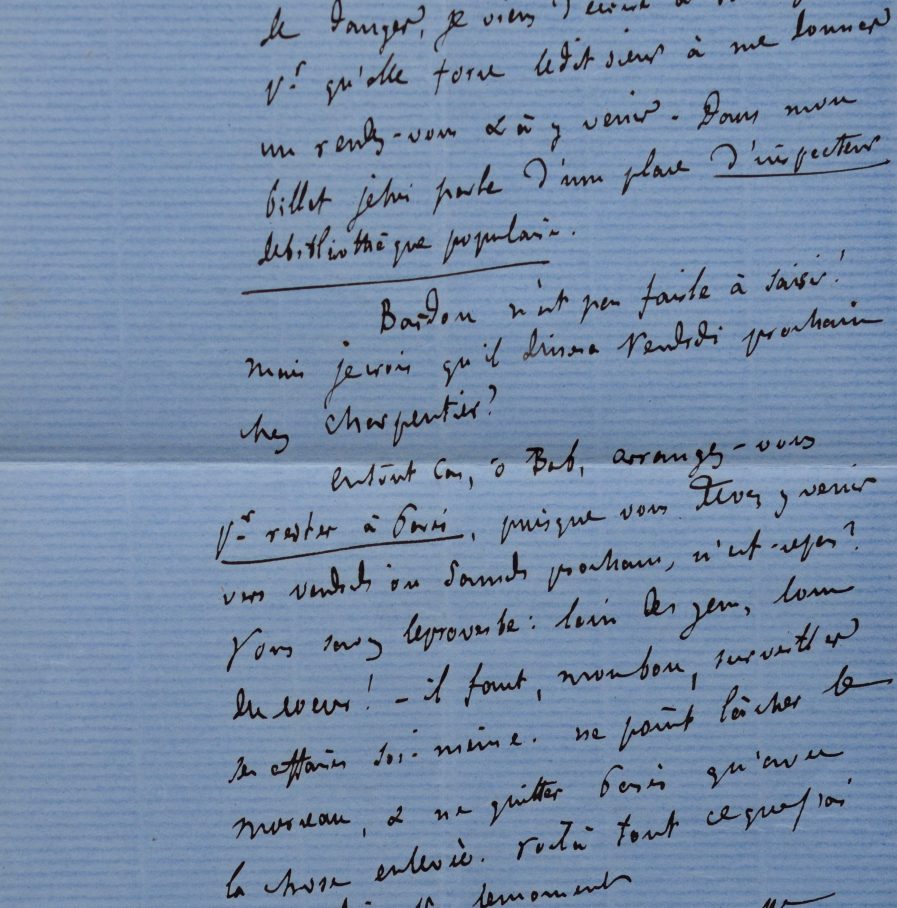 le danger, je viens d'écrire à
pr qu'elle force ledit sieur à me donner
un rendez-vous & à y venir. Dans mon
billet je lui parle d'une place d'inspecteur
de bibliothèque populaire.
Bardoux n'est pas facile à saisir!
mais je crois qu'il dinera Vendredi prochain
chez Charpentier?
en tout cas, ô Bab, arrangez-vous
pr rester à Paris, puisque vous devez y venir
vers vendredi ou Samedi prochain, n'est-ce pas?
Vous savez le proverbe: loin des yeux, loin
du coeur! - il faut, mon bon, surveiller
ses affaires soi-même. ne point lâcher le
morceau, & ne quitter Paris qu'avec
la chose enlevée. voilà tout ce que j'ai
le moment